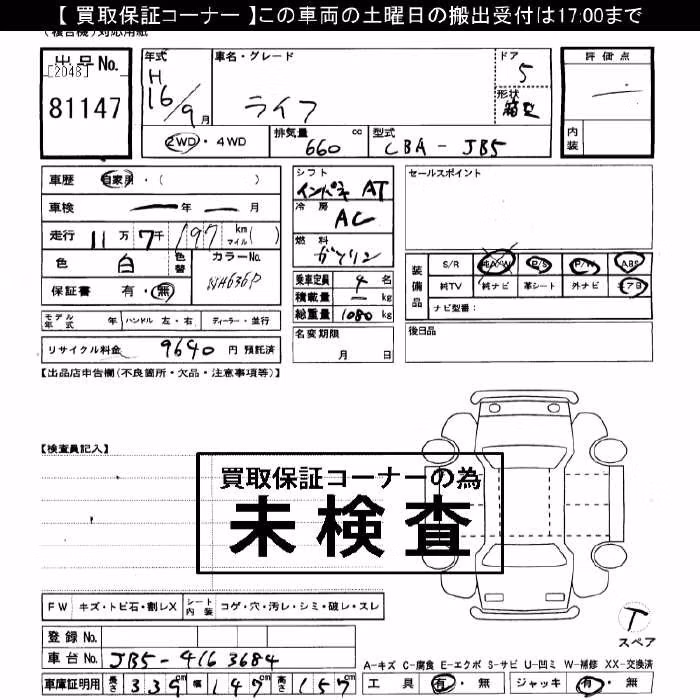 【 買取保証コーナー 】この車両の土曜日の搬出受付は17:00まで
出品No.
[2048]
81147
年式 H 16/9 月
車名・グレード ライフ
ドア 5
形状 箱型
評価点
内装
2WD・4WD
排気量 660 cc
型式 CBA - JB5
車歴 自家用・( )
車検 ー年ー月
走行 11万7千197 km マイル( )
色 白 色替
カラーNo.
保証書 有・無
シフト インパネ AT
冷房 AC
燃料 ガソリン
乗車定員 4 名
積載量 ー kg
総重量 1080 kg
セールスポイント
装備品 S/R 純A/W P/S P/W ABS
純TV 純ナビ 革シート 外ナビ エアB
ナビ型番:
モデル年式 年 ハンドル 左・右 ディーラー・並行
リサイクル料金 9640 円 預託済
名変期限 月 日
後日品
【出品店申告欄(不良箇所・欠品・注意事項等)】
【検査員記入】
買取保証コーナーの為
未検査
FW キズ・トビ石・割レX シート内装 コゲ・穴・汚レ・シミ・破レ・スレ
登録No.
車台No. JB5-4163684
車庫証明用 長さ 339 幅 147 高さ 157
T
スペア
A-キズ C-腐食 E-エクボ S-サビ U-凹ミ W-補修 XX-交換済
工具 有・無 ジャッキ 有・無